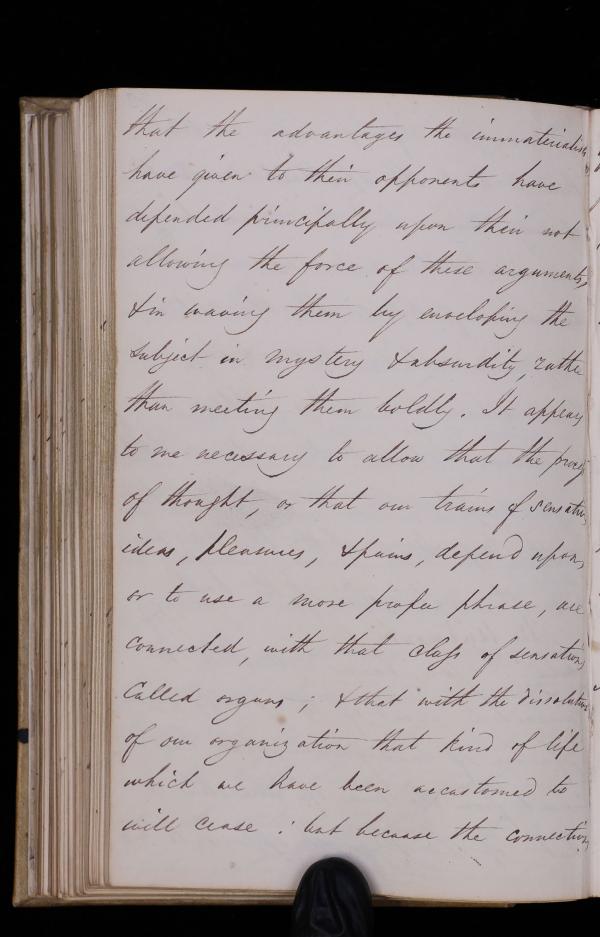 that the advantages the immaterialists
have given to their opponents have
depended principally upon their not
allowing the force of these arguments,
& in waving them by enveloping the
subject in mystery & absurdity, rather
than meeting them boldly. It appears
to me necessary to allow that the process
of thought, or that our trains of sensations
ideas, pleasures, & pains, depend upon,
or to use a more proper phrase, are
connected, with that class of sensations
called organs; & that with the dissolution
of our organization that kind of life
which we have been accustomed to
will cease: but because the connection